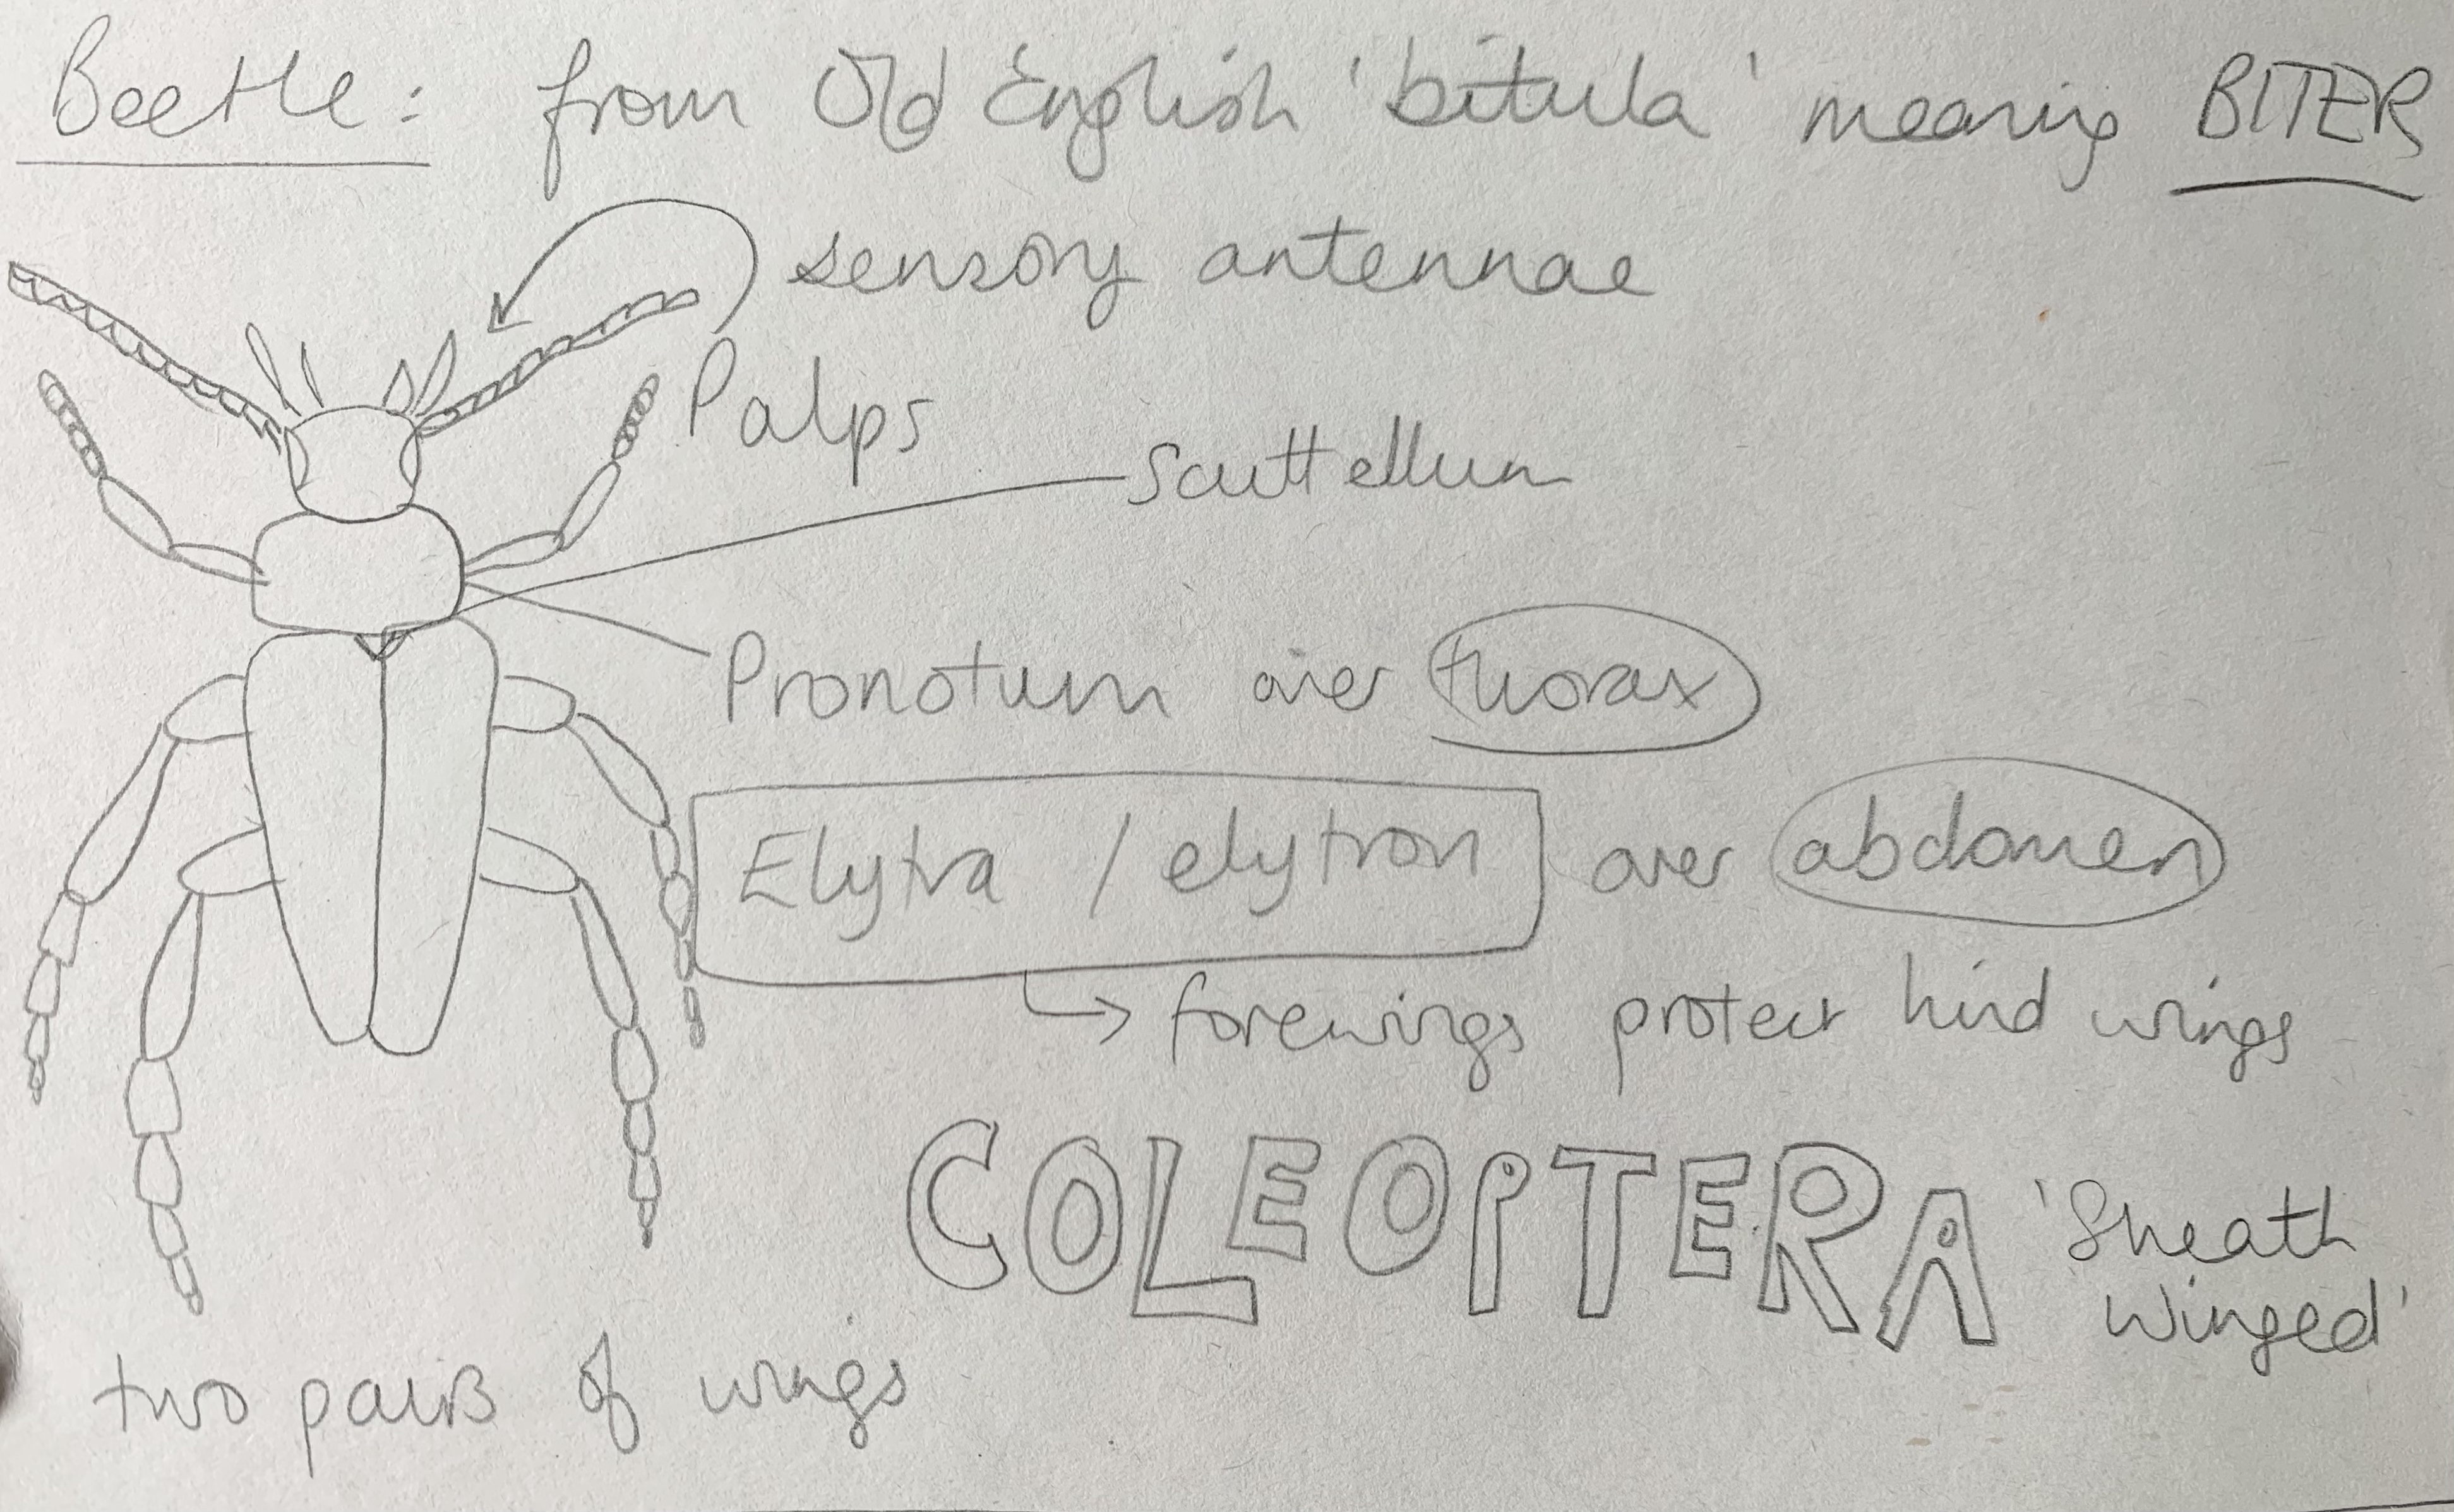 Beetle: from Old English 'bitula' meaning BITER
sensory antennae
Palps
Scuttellum
Pronotum over thorax
Elytra / elytron over abdomen
↳ forewings protect hind wings
COLEOPTERA 'Sheath
winged'
two pairs of wings